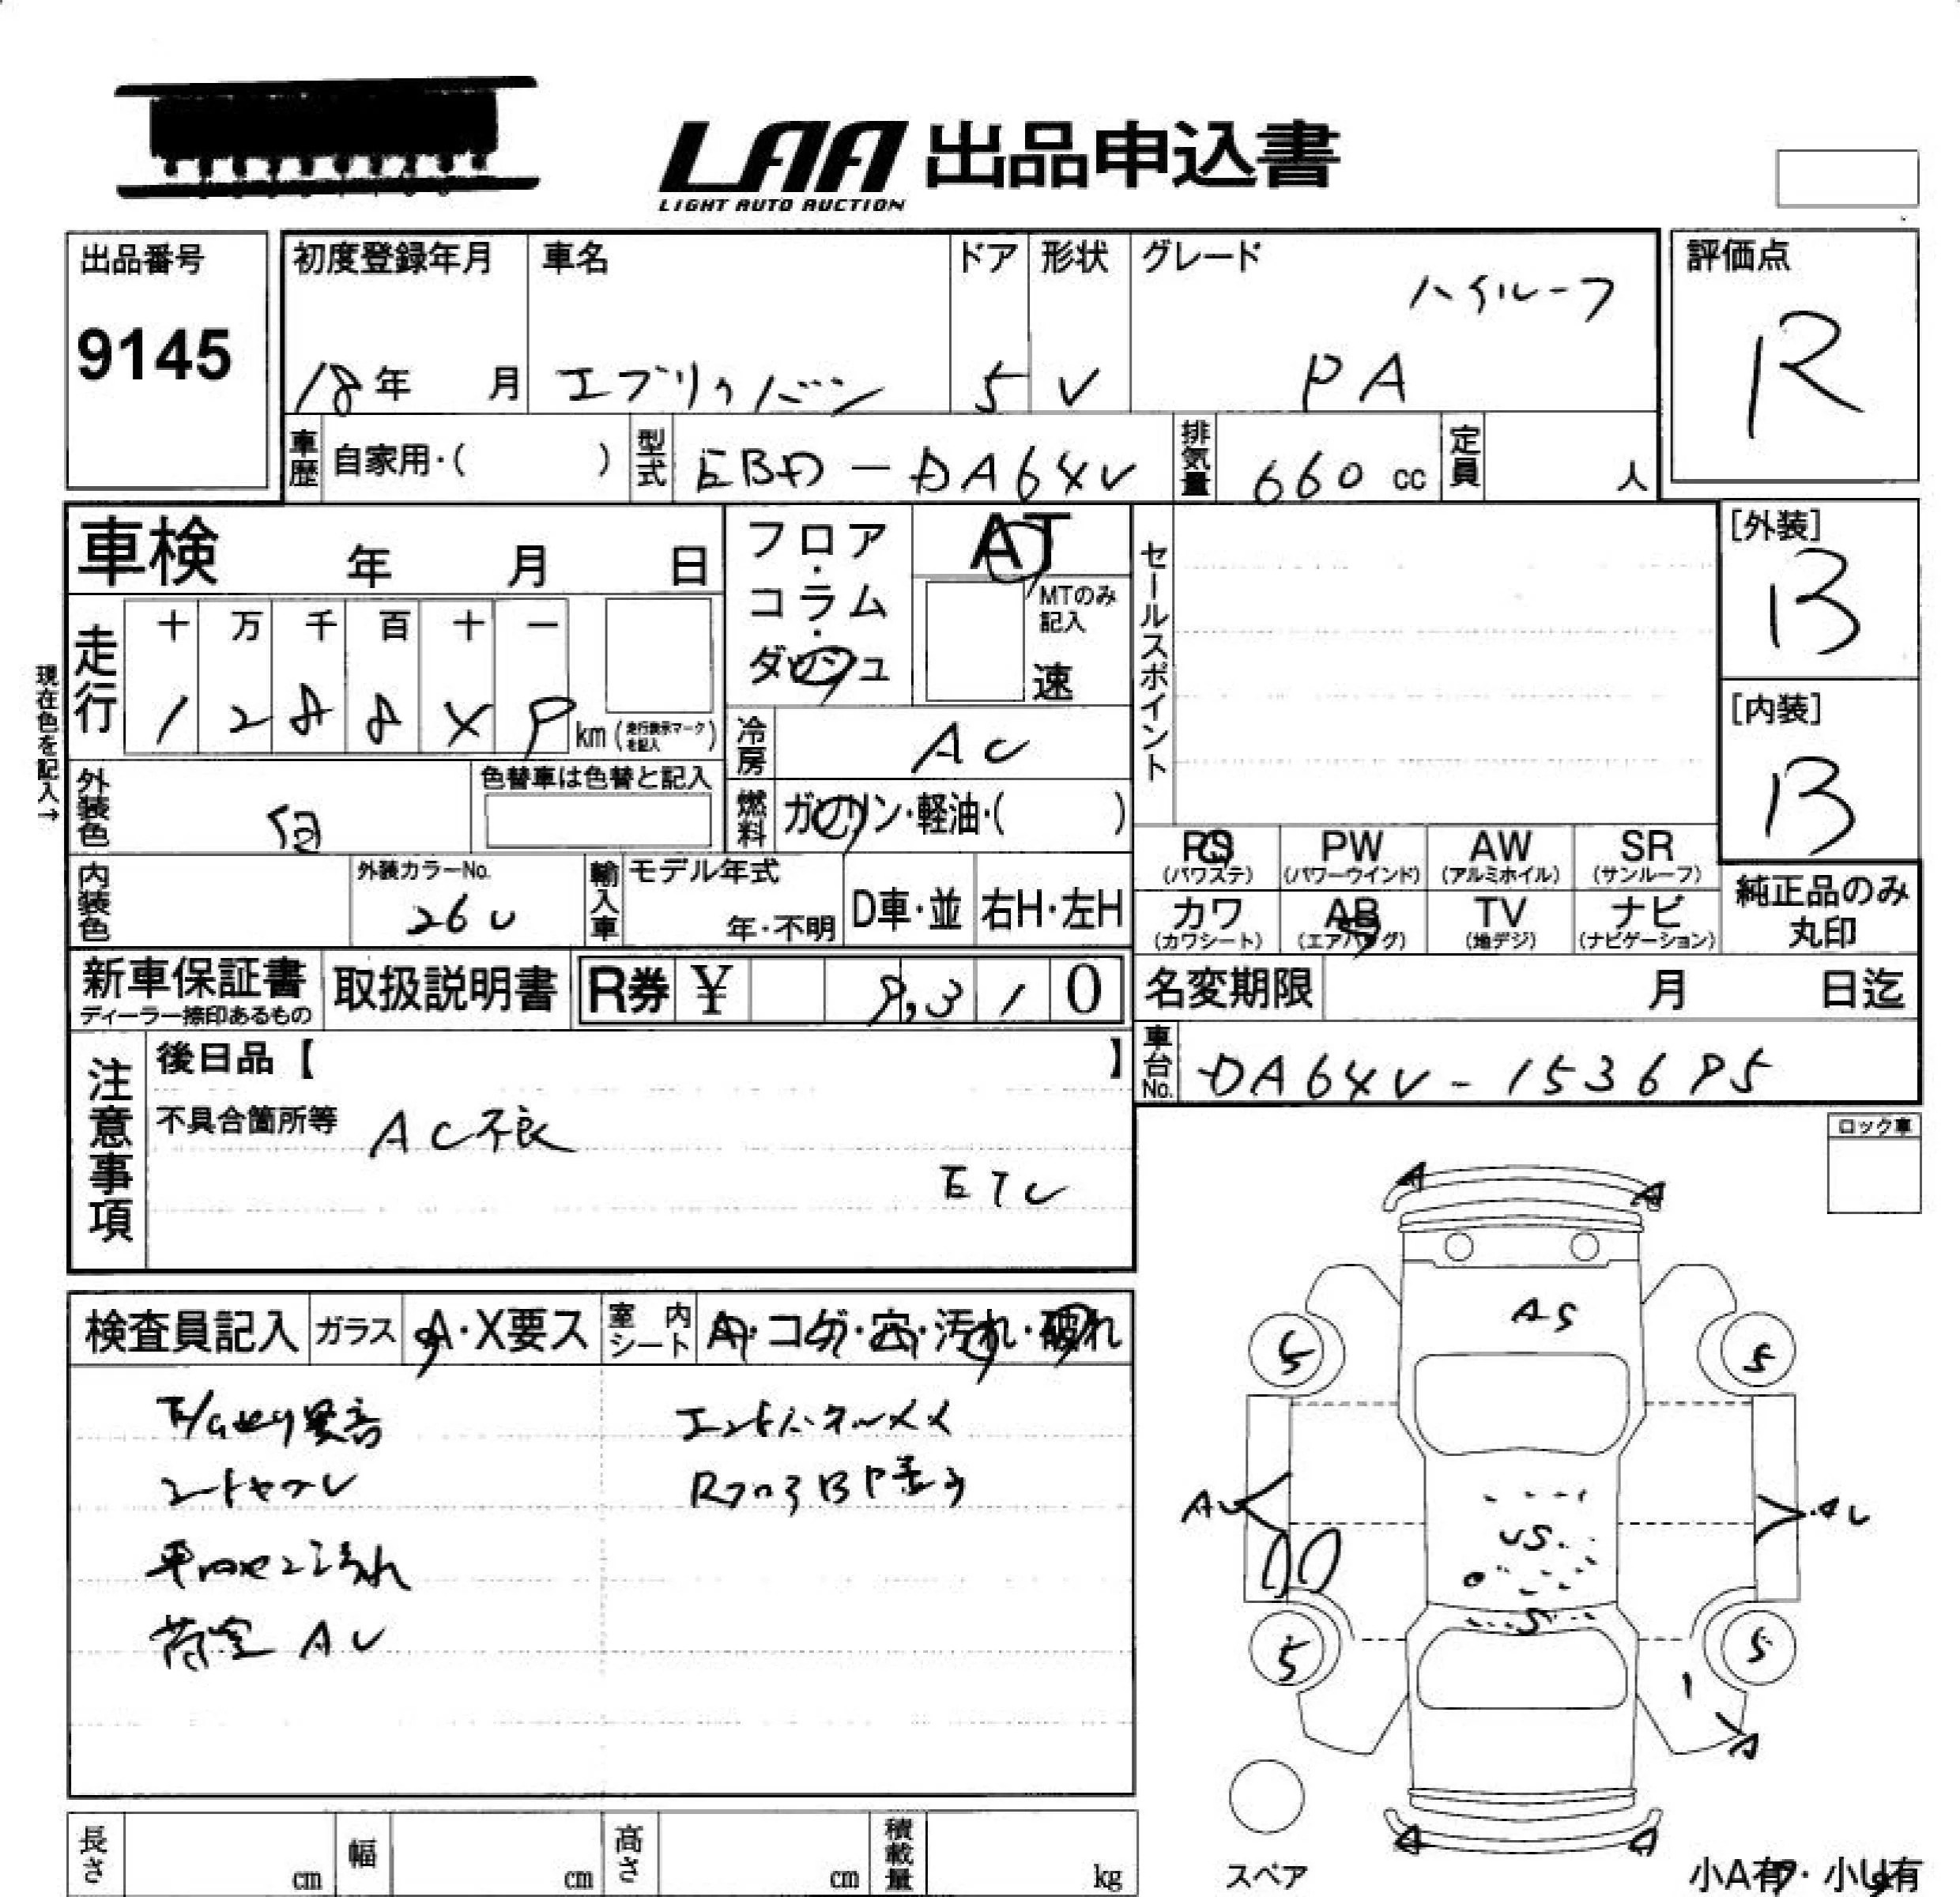 LAA 出品申込書
LIGHT AUTO AUCTION
出品番号
9145
初度登録年月
18年 月
車名
エブリィバン
ドア
5
形状
V
グレード
ハイルーフ
PA
評価点
R
車歴 自家用・( )
型式 EBD-DA64V
排気量 660 cc
定員 人
車検 年 月 日
フロア・コラム・ダッシュ
AT
MTのみ記入
速
セールスポイント
[外装]
B
[内装]
B
現在色を記入→
走行
十 万 千 百 十 一
1 2 8 8 4 9 km (走行表示マークを記入)
冷房 AC
外装色 白
色替車は色替と記入
燃料 ガソリン・軽油・( )
内装色
外装カラーNo.
26U
輸入車
モデル年式
年・不明
D車・並
右H・左H
PS (パワステ)
PW (パワーウインド)
AW (アルミホイル)
SR (サンルーフ)
カワ (カワシート)
AB (エアバッグ)
TV (地デジ)
ナビ (ナビゲーション)
純正品のみ丸印
新車保証書
ディーラー捺印あるもの
取扱説明書
R券 ¥ 9,310
名変期限 月 日迄
車台No. DA64V-153695
注意事項
後日品【 】
不具合箇所等 AC不良
ETC
ロック車
検査員記入
ガラス A・X要ス
室内シート A・コゲ・穴・汚れ・破れ
E/Gより異音
荷室 AU
A A
AS
5 5
AU AU
US
S
5 5
A
A A
スペア
小A有・小U有
長さ cm
幅 cm
高さ cm
積載量 kg